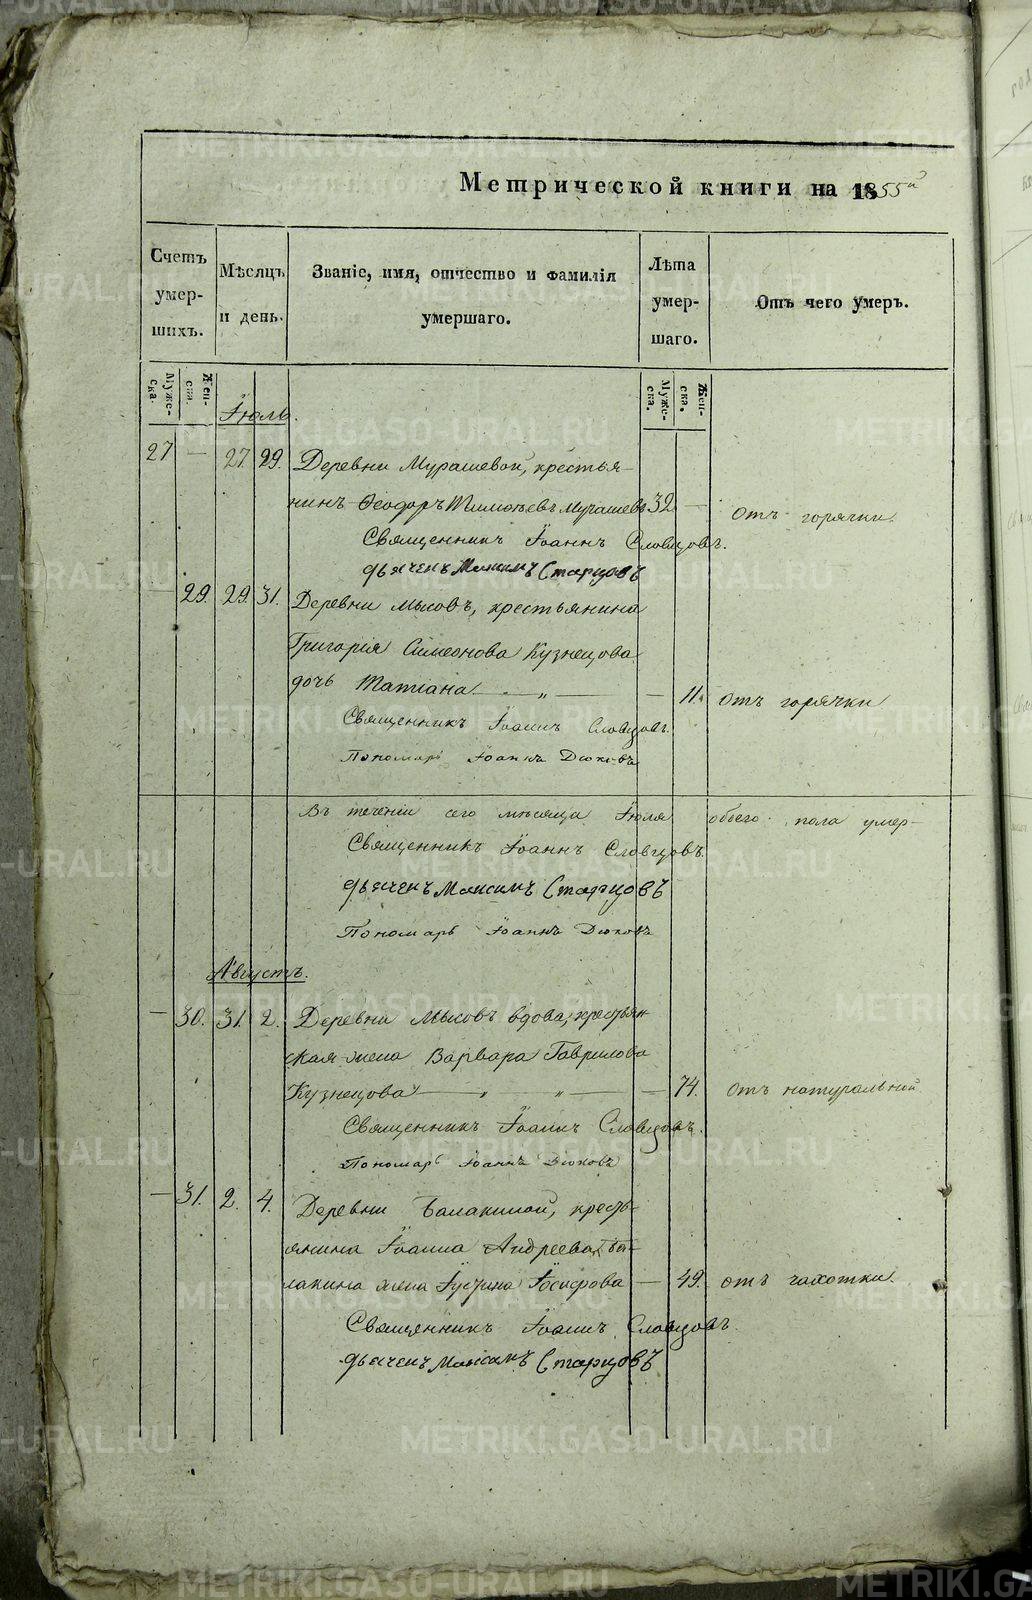 Метрической книги на 1855й
Счетъ умер-шихъ.
Мѣсяцъ и день.
Званіе, имя, отчество и фамилія умершаго.
Лѣта умер-шаго.
Отъ чего умеръ.
Муже-ска.
Жен-ска.
Муже-ска.
Жен-ска.
Іюль.
27 — 27. 29. Деревни Мурашевой, крестья-
нинъ Ѳеодоръ Тимоѳеевъ Мурашевъ 32 — отъ горячки.
Священникъ Іоаннъ Словцовъ.
дьячекъ Максимъ Старцовъ
— 29. 29. 31. Деревни Мысовъ, крестьянина
Григорія Симеонова Кузнецова
дочь Татіана — „ — — 11. отъ горячки
Священникъ Іоаннъ Словцовъ.
Пономарь Іоаннъ Дюковъ
Въ теченіи сего мѣсяца Іюля обоего пола умер-
Священникъ Іоаннъ Словцовъ.
дьячекъ Максимъ Старцовъ
Пономарь Іоаннъ Дюковъ
Августъ.
— 30. 31. 2. Деревни Мысовъ вдова, крестьян-
ская жена Варвара Гаврилова
Кузнецова — „ „ — — 74. отъ натуральной
Священникъ Іоаннъ Словцовъ.
Пономарь Іоаннъ Дюковъ
— 31. 2. 4. Деревни Балакиной, кресть-
янина Іоанна Андреева Ба-
лакина жена Іустина Іосифова — 49. отъ чахотки.
Священникъ Іоаннъ Словцовъ.
дьячекъ Максимъ Старцовъ
METRIKI.GASO-URAL.RU